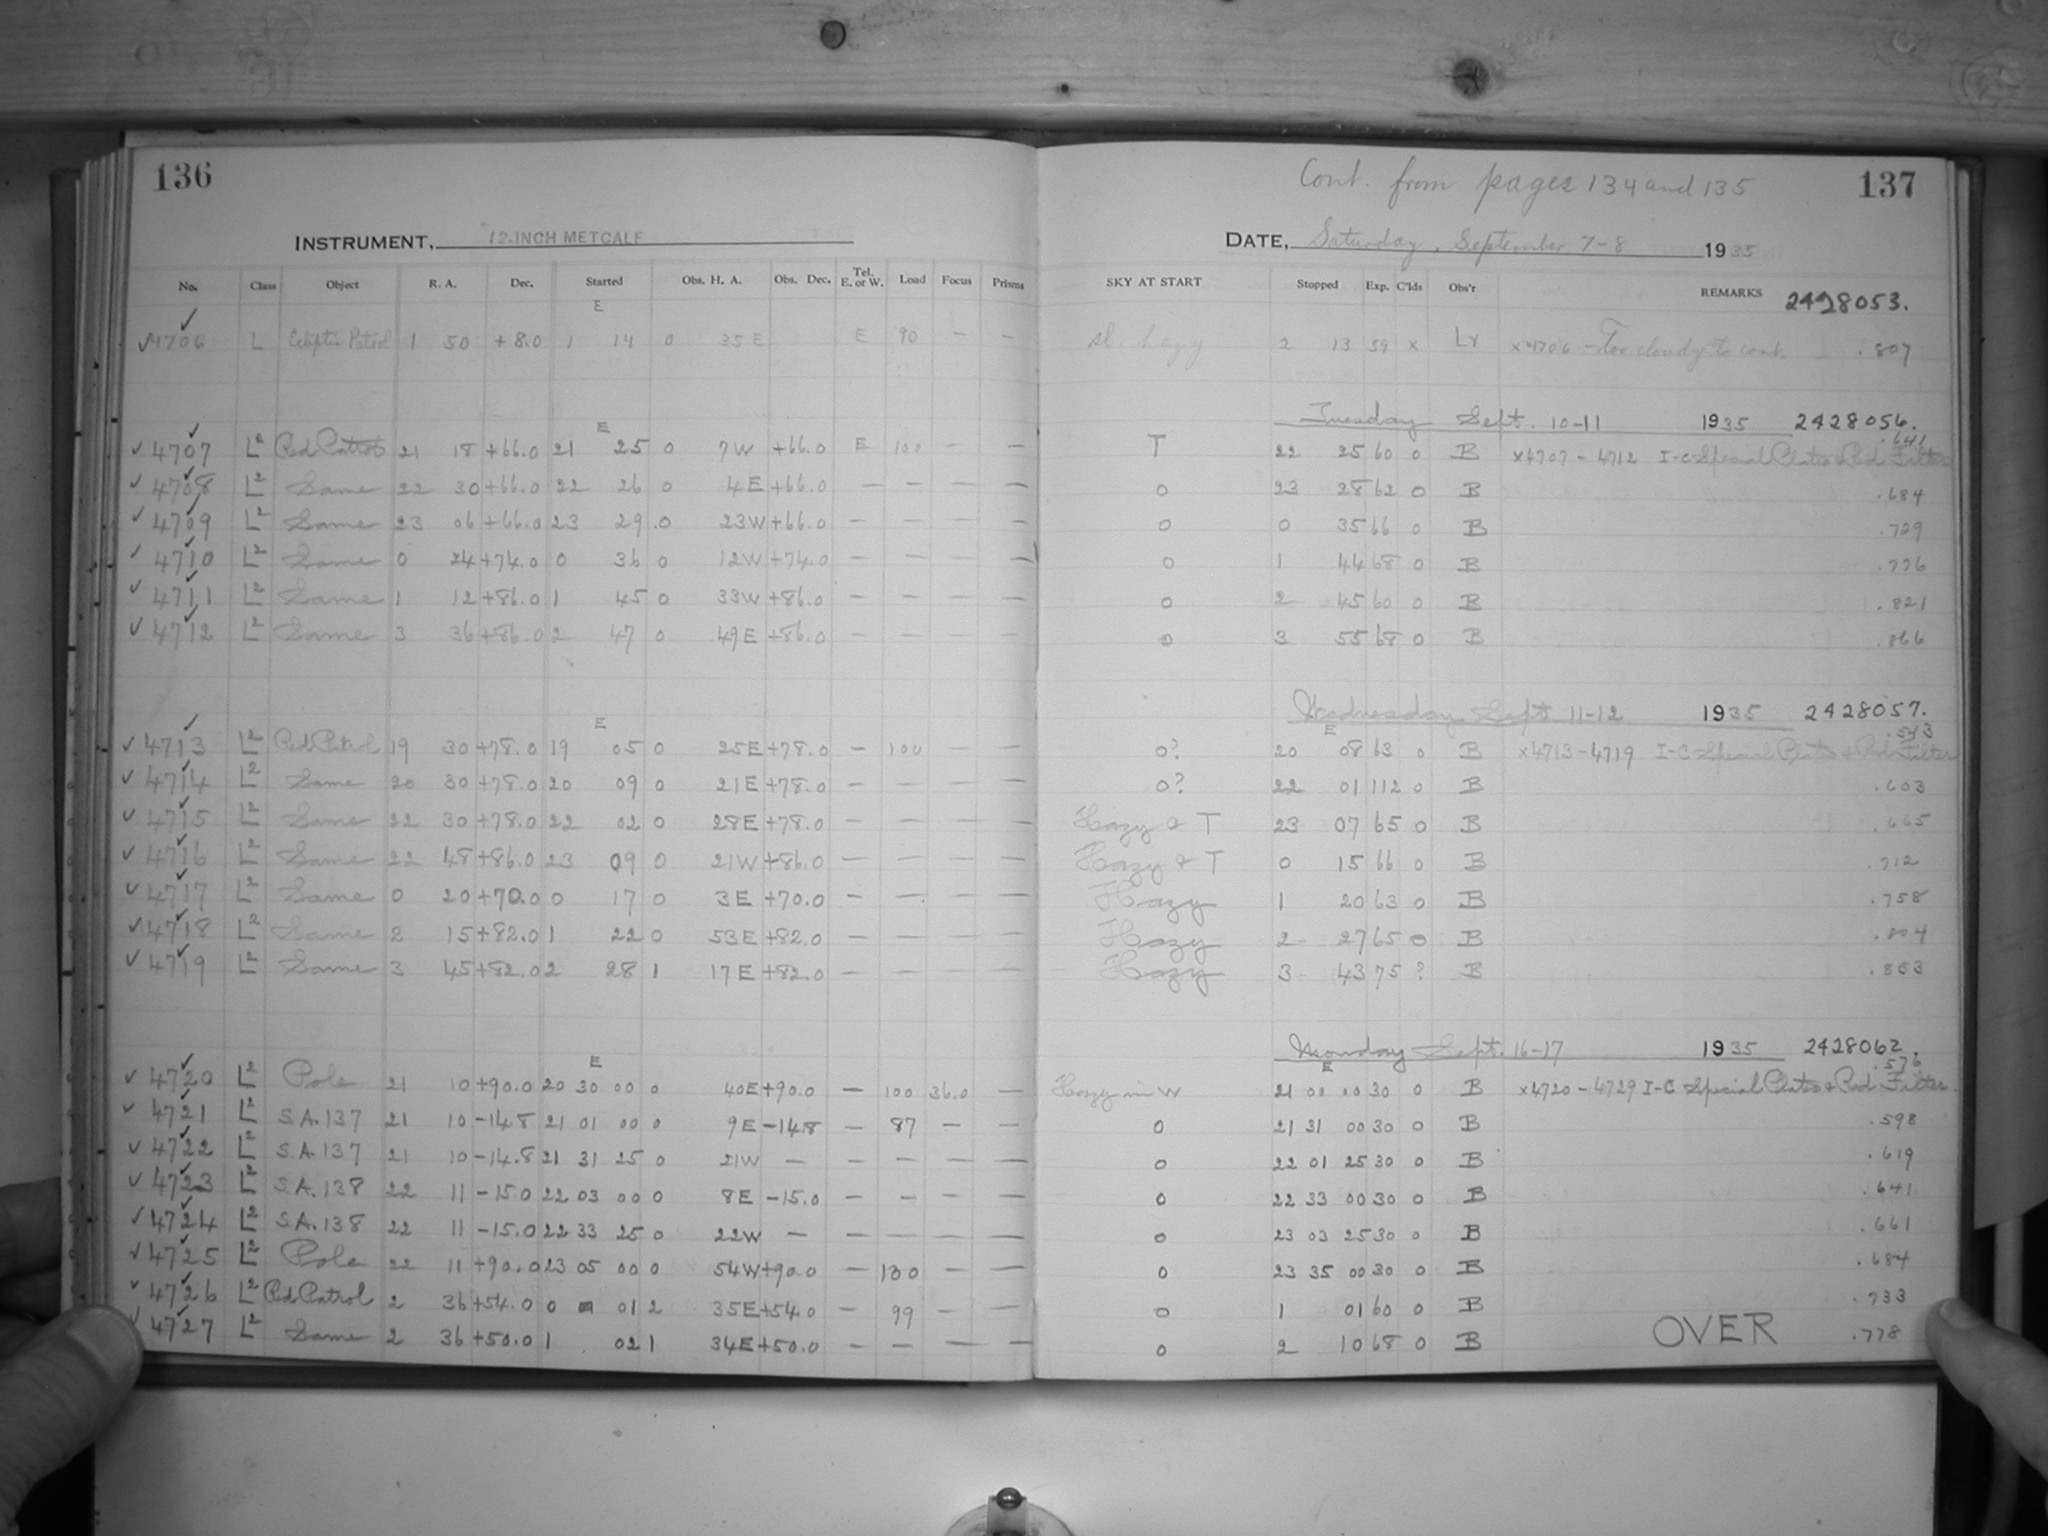 136
INSTRUMENT, 12-INCH METCALF
No. Class Object R. A. Dec. Started Obs. H. A. Obs. Dec. Tel. E. or W. Load Focus Prisms
E
✓4706 L Ecliptic Patrol 1 50 +8.0 1 14 0 35 E E 90 — —
E
✓ 4707 L² Red Patrol 21 18 +66.0 21 25 0 7W +66.0 E 100 — —
✓ 4708 L² Same 22 30 +66.0 22 26 0 4E +66.0 — — — —
✓ 4709 L² Same 23 06 +66.0 23 29 0 23W +66.0 — — — —
✓ 4710 L² Same 0 24 +74.0 0 36 0 12W +74.0 — — — —
✓ 4711 L² Same 1 12 +86.0 1 45 0 33W +86.0 — — — —
✓ 4712 L² Same 3 36 +86.0 2 47 0 49E +86.0 — — — —
E
✓ 4713 L² Red Patrol 19 30 +78.0 19 05 0 25E +78.0 — 100 — —
✓ 4714 L² Same 20 30 +78.0 20 09 0 21E +78.0 — — — —
✓ 4715 L² Same 22 30 +78.0 22 02 0 28E +78.0 — — — —
✓ 4716 L² Same 22 48 +86.0 23 09 0 21W +86.0 — — — —
✓ 4717 L² Same 0 20 +70.0 0 17 0 3E +70.0 — — — —
✓ 4718 L² Same 2 15 +82.0 1 22 0 53E +82.0 — — — —
✓ 4719 L² Same 3 45 +82.0 2 28 1 17E +82.0 — — — —
E
✓ 4720 L² Pole 21 10 +90.0 20 30 00 0 40E +90.0 — 100 36.0 —
✓ 4721 L² S.A. 137 21 10 -14.8 21 01 00 0 9E -14.8 — 87 — —
✓ 4722 L² S.A. 137 21 10 -14.8 21 31 25 0 21W — — — — —
✓ 4723 L² S.A. 138 22 11 -15.0 22 03 00 0 8E -15.0 — — — —
✓ 4724 L² S.A. 138 22 11 -15.0 22 33 25 0 22W — — — — —
✓ 4725 L² Pole 22 11 +90.0 23 05 00 0 54W +90.0 — 100 — —
✓ 4726 L² Red Patrol 2 36 +54.0 0 01 2 35E +54.0 — 99 — —
✓ 4727 L² Same 2 36 +50.0 1 02 1 34E +50.0 — — — —
Cont. from pages 134 and 135 137
DATE, Saturday, September 7-8 1935
SKY AT START Stopped Exp. C'lds Obs'r REMARKS 2428053.
sl. hazy 2 13 59 x Lr x4706 - Too cloudy to cont. .807
Tuesday Sept. 10-11 1935 2428056.
.641
T 22 25 60 0 B x4707 - 4712 I-C Special Plates & Red Filter
0 23 28 62 0 B .684
0 0 35 66 0 B .729
0 1 44 68 0 B .776
0 2 45 60 0 B .821
0 3 55 68 0 B .866
Wednesday Sept. 11-12 1935 2428057.
E .543
0? 20 08 63 0 B x4713 - 4719 I-C Special Plates & Red Filter
0? 22 01 112 0 B .603
Hazy & T 23 07 65 0 B .665
Hazy & T 0 15 66 0 B .712
Hazy 1 20 63 0 B .758
Hazy 2 27 65 0 B .804
Hazy 3 43 75 ? B .853
Monday Sept. 16-17 1935 2428062.
E .576
Hazy in W 21 00 00 30 0 B x4720 - 4729 I-C Special Plates & Red Filter.
0 21 31 00 30 0 B .598
0 22 01 25 30 0 B .619
0 22 33 00 30 0 B .641
0 23 03 25 30 0 B .661
0 23 35 00 30 0 B .684
0 1 01 60 0 B .733
0 2 10 68 0 B OVER .778